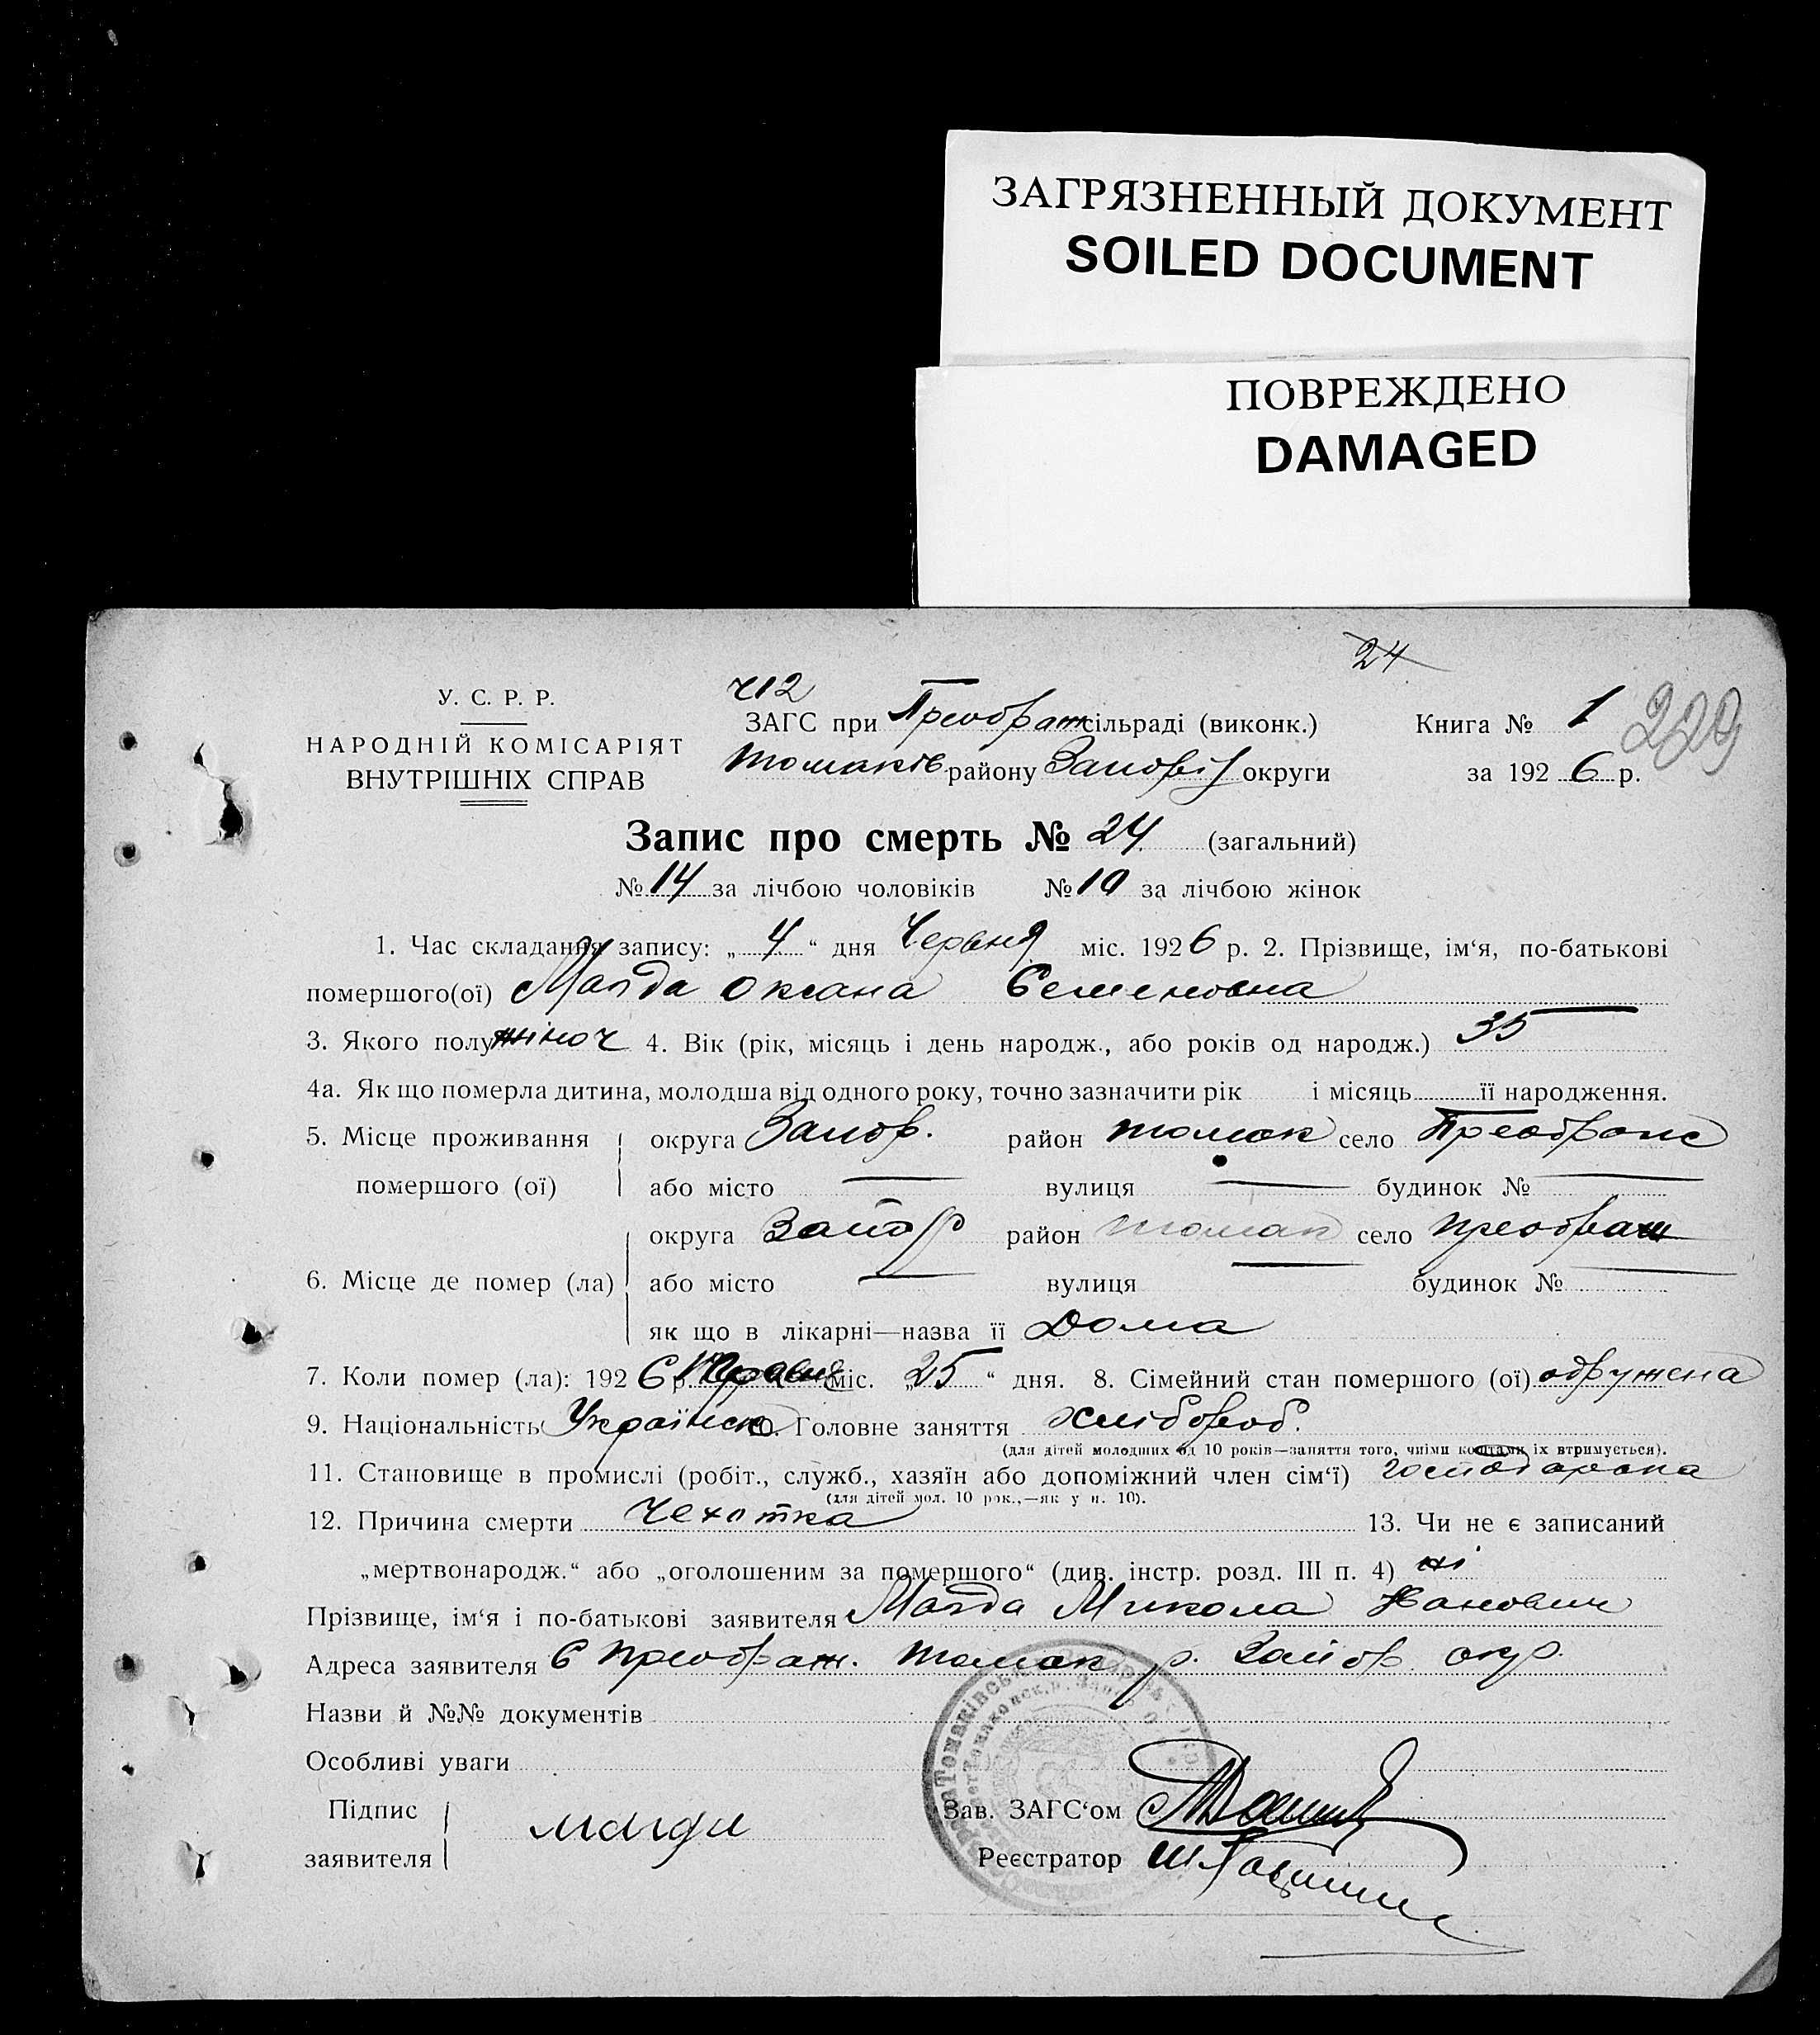 ЗАГРЯЗНЕННЫЙ ДОКУМЕНТ
SOILED DOCUMENT
ПОВРЕЖДЕНО
DAMAGED
24
У. С. Р. Р.
НАРОДНІЙ КОМІСАРІЯТ
ВНУТРІШНІХ СПРАВ
ЗАГС при Преображ сільраді (виконк.)
Томаків району Запоріз округи
Книга № 1
229
за 1926 р.
Запис про смерть № 24 (загальний)
№ 14 за лічбою чоловіків № 10 за лічбою жінок
1. Час складання запису: „4“ дня Червня міс. 1926 р. 2. Прізвище, ім‘я, по-батькові
помершого(ої) Оксана Семеновна
3. Якого полу жіноч 4. Вік (рік, місяць і день народж., або років од народж.) 35
4а. Як що померла дитина, молодша від одного року, точно зазначити рік і місяць її народження.
5. Місце проживання округа Запор. район Томак село Преображ
помершого (ої) або місто — вулиця — будинок № —
округа Запор район Томак село Преображ
6. Місце де помер (ла) або місто — вулиця — будинок № —
як що в лікарні—назва її Дома
7. Коли помер (ла): 1926 р. Травня міс. „25“ дня. 8. Сімейний стан помершого (ої) одружена
9. Національність Українка 10. Головне заняття хлібороб.
(для дітей молодших од 10 років—заняття того, чиїми коштами їх втримується).
11. Становище в промислі (робіт., служб., хазяїн або допоміжний член сім‘ї)
(для дітей мол. 10 рок.,—як у п. 10).
12. Причина смерти Чехотка 13. Чи не є записаний
„мертвонародж.“ або „оголошеним за помершого“ (див. інстр. розд. III п. 4) ні
Прізвище, ім‘я і по-батькові заявителя Микола Іванович
Адреса заявителя С Преображ. Томак р. Запор окр.
Назви й №№ документів
Особливі уваги
Підпис
заявителя
Зав. ЗАГС‘ом
Реєстратор